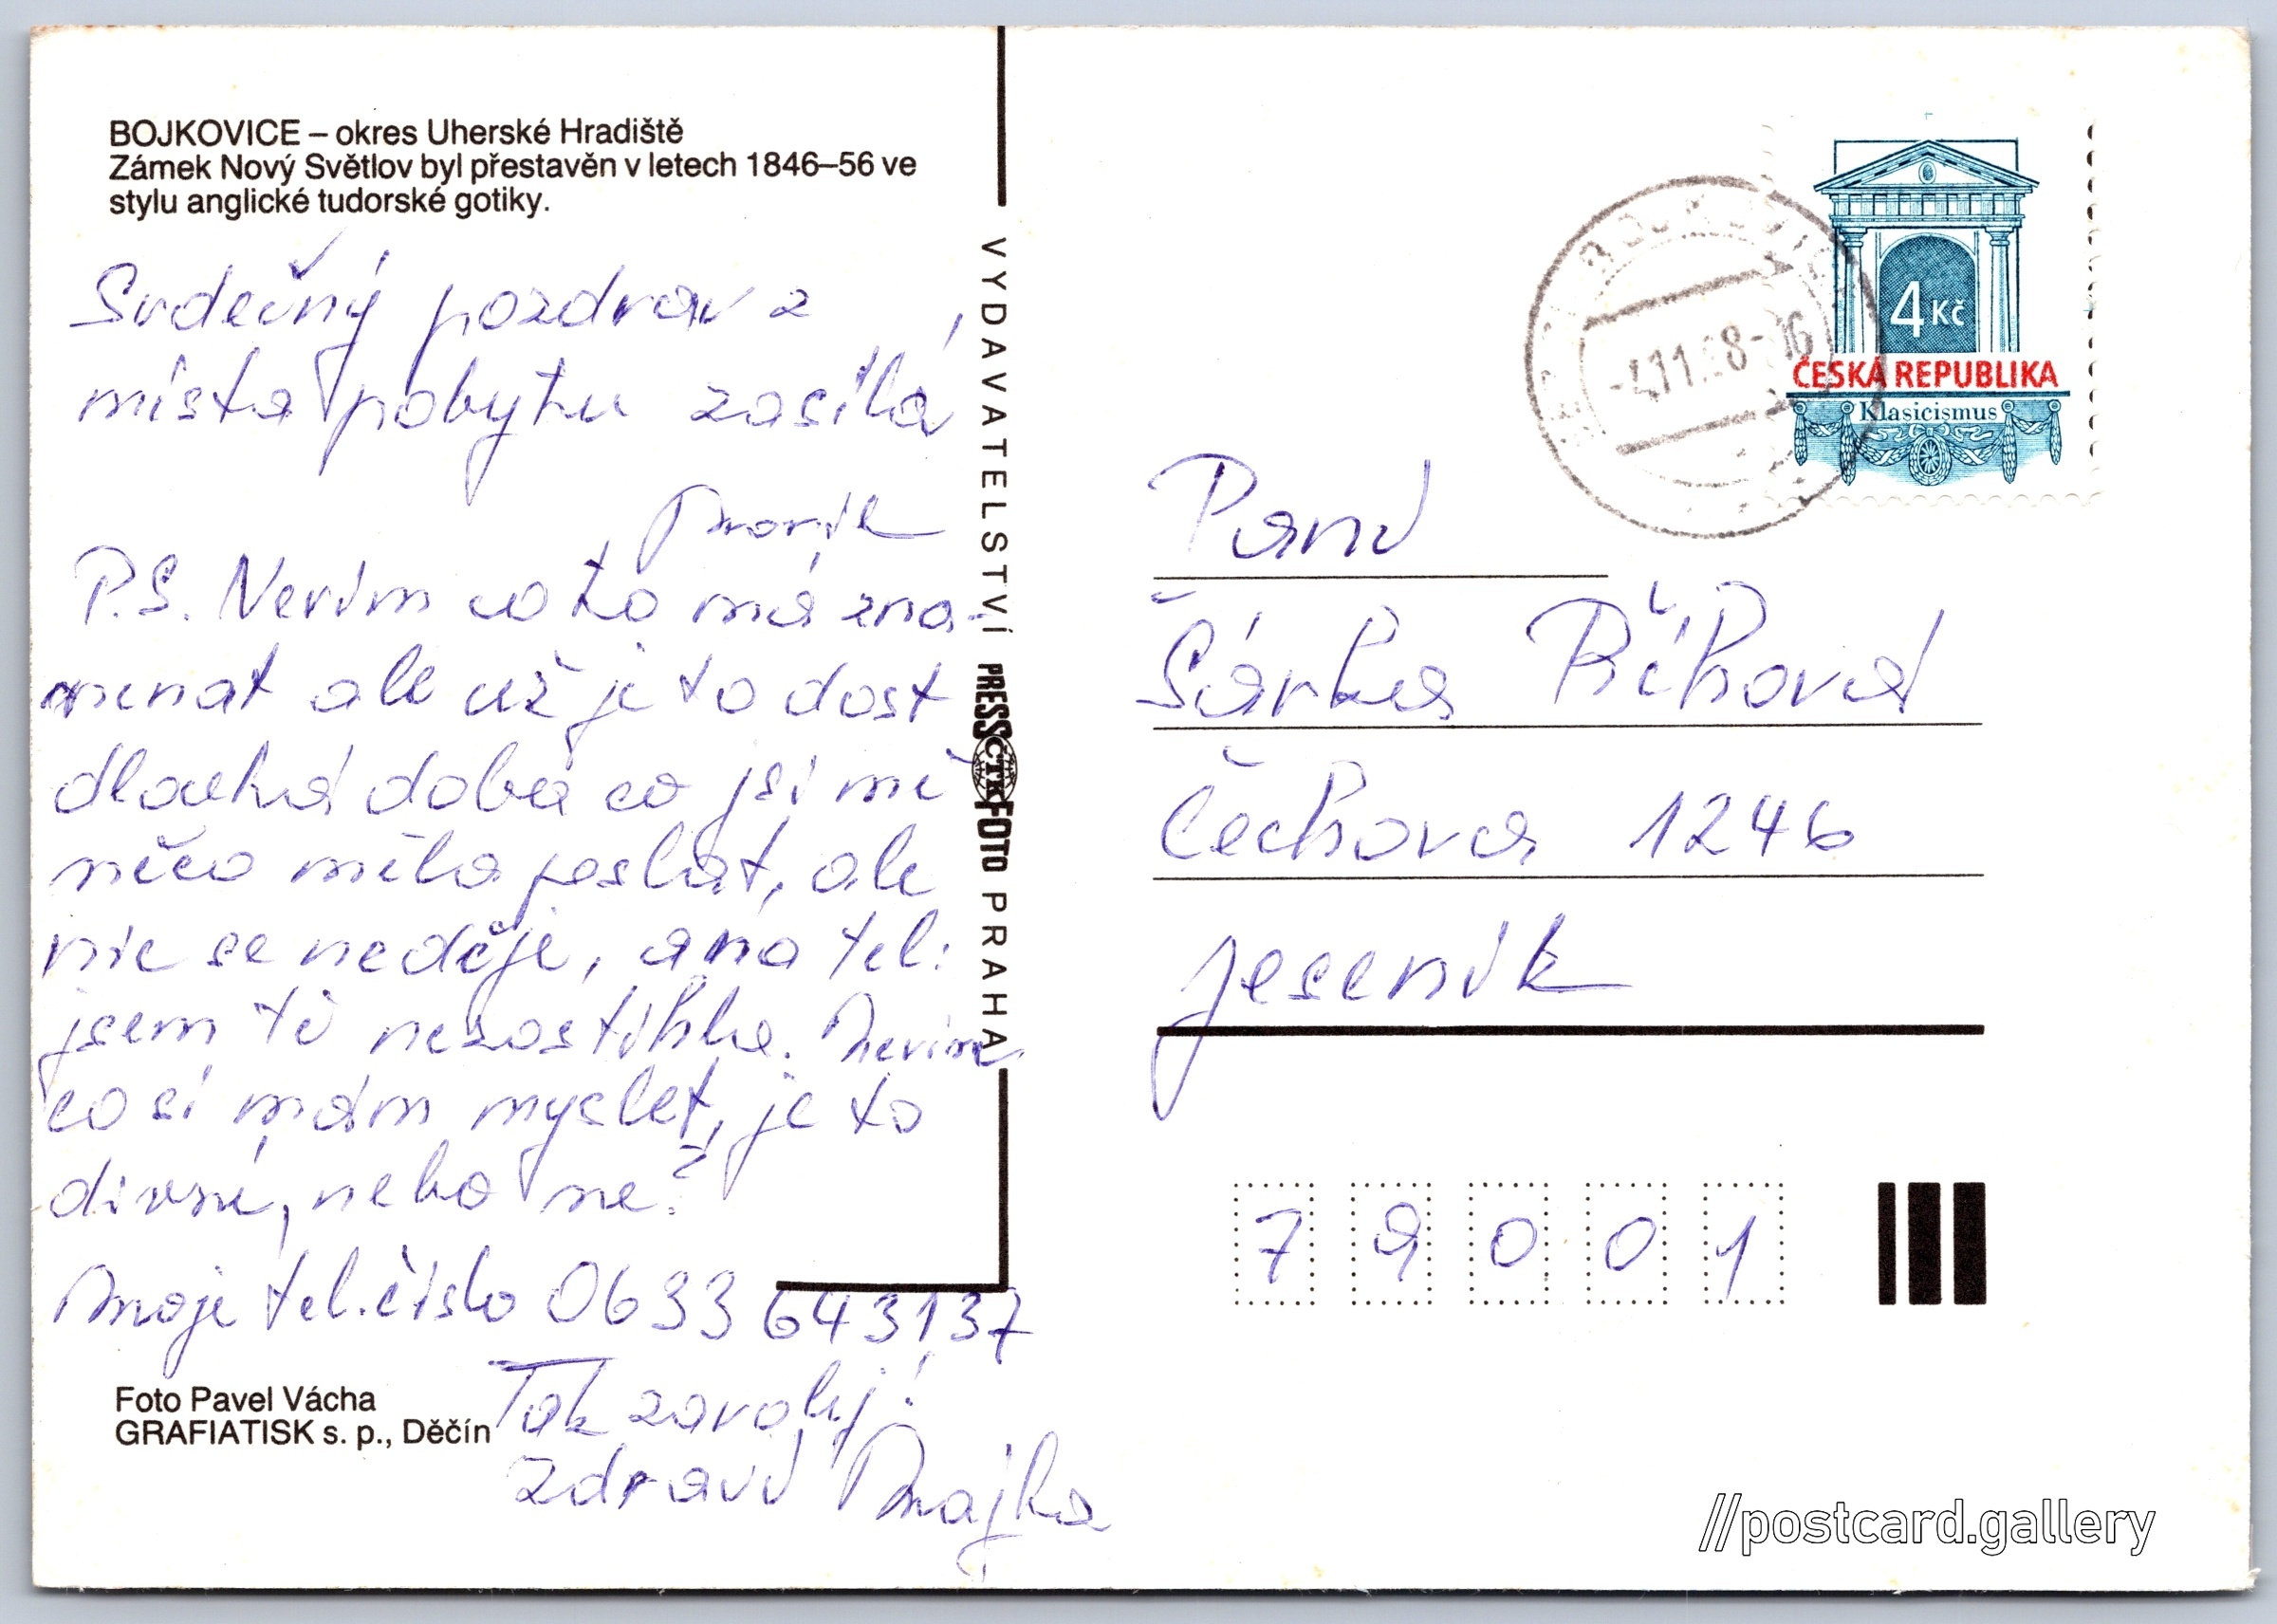 BOJKOVICE – okres Uherské Hradiště
Zámek Nový Světlov byl přestavěn v letech 1846–56 ve
stylu anglické tudorské gotiky.
Srdečný pozdrav z
místa pobytu zasílá
P.S. Nevím co to má zna-
menat ale už je to dost
dlouhá doba co jsi mě
něco měla poslat, ale
nic se neděje, ana tel.
jsem tě nezastihla. Nevím
co si mám myslet, je to
divné, nebo ne?
Moje tel. číslo 0633 643137
Tak zavolej!
Zdraví Majka
Foto Pavel Vácha
GRAFIATISK s. p., Děčín
VYDAVATELSTVÍ PRESSČTKFOTO PRAHA
4 Kč
ČESKÁ REPUBLIKA
Klasicismus
-4.11.98-16
Paní
Šárka Říhová
Čechova 1246
Jeseník
79001
//postcard.gallery